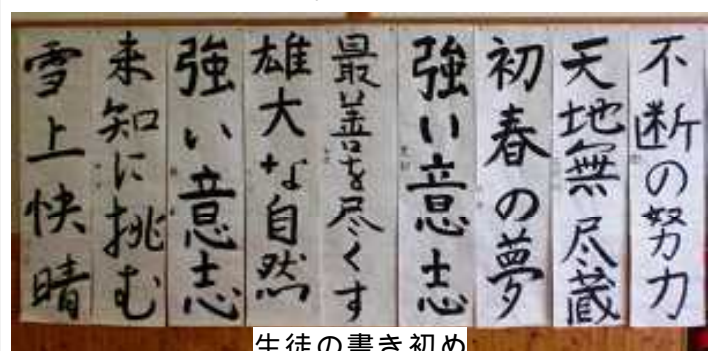 不断の努力
天地無尽蔵
初春の夢
強い意志
最善を尽くす
雄大な自然
強い意志
未知に挑む
雪上快晴
生徒の書き初め